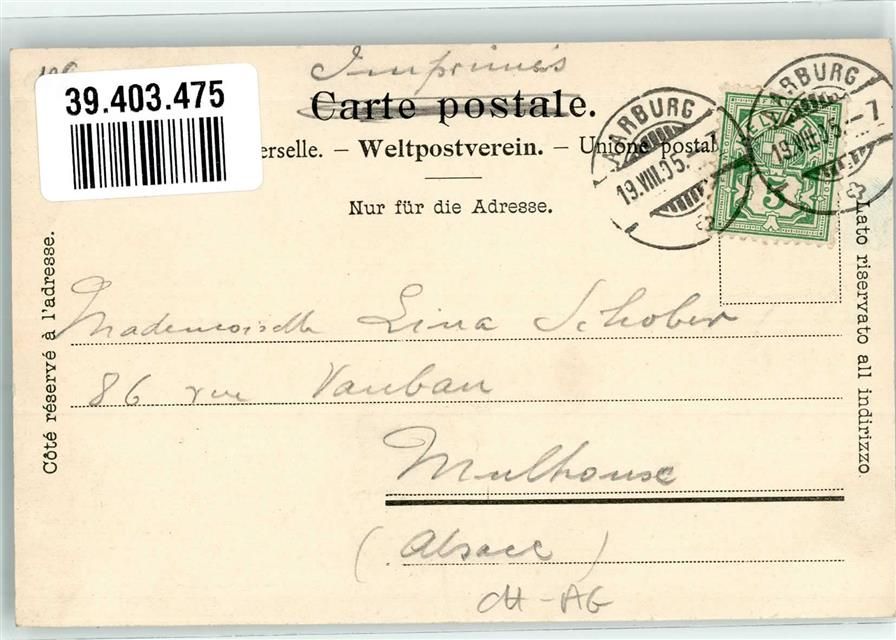 Imprimés
39.403.475
Carte postale.
erselle. – Weltpostverein. – Unione postal
Nur für die Adresse.
AARBURG
19.VIII.05.–7
AARBURG
19.VIII.05.–7
HELV
5
Côté réservé à l'adresse.
Lato riservato all indirizzo.
Mademoiselle Lina Schober
86 rue Vauban
Mulhouse
(Alsace)
CH-AG